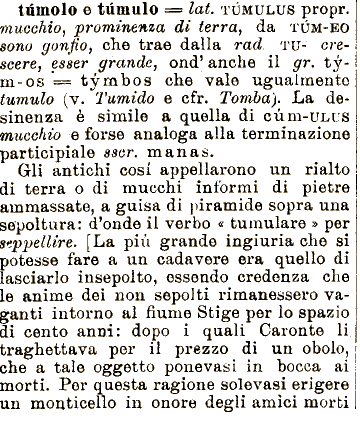 túmolo e túmulo = lat. TÚMULUS propr.
mucchio, prominenza di terra, da TÚM-EO
sono gonfio, che trae dalla rad. TU- cre-
scere, esser grande, ond'anche il gr. tý-
m-os = týmbos che vale ugualmente
tumulo (v. Tumido e cfr. Tomba). La de-
sinenza è simile a quella di cúm-ULUS
mucchio e forse analoga alla terminazione
participiale sscr. manas.
Gli antichi cosí appellarono un rialto
di terra o di mucchi informi di pietre
ammassate, a guisa di piramide sopra una
sepoltura: d'onde il verbo « tumulare » per
seppellire. [La più grande ingiuria che si
potesse fare a un cadavere era quello di
lasciarlo insepolto, essendo credenza che
le anime dei non sepolti rimanessero va-
ganti intorno al fiume Stige per lo spazio
di cento anni: dopo i quali Caronte li
traghettava per il prezzo di un obolo,
che a tale oggetto ponevasi in bocca ai
morti. Per questa ragione solevasi erigere
un monticello in onore degli amici morti